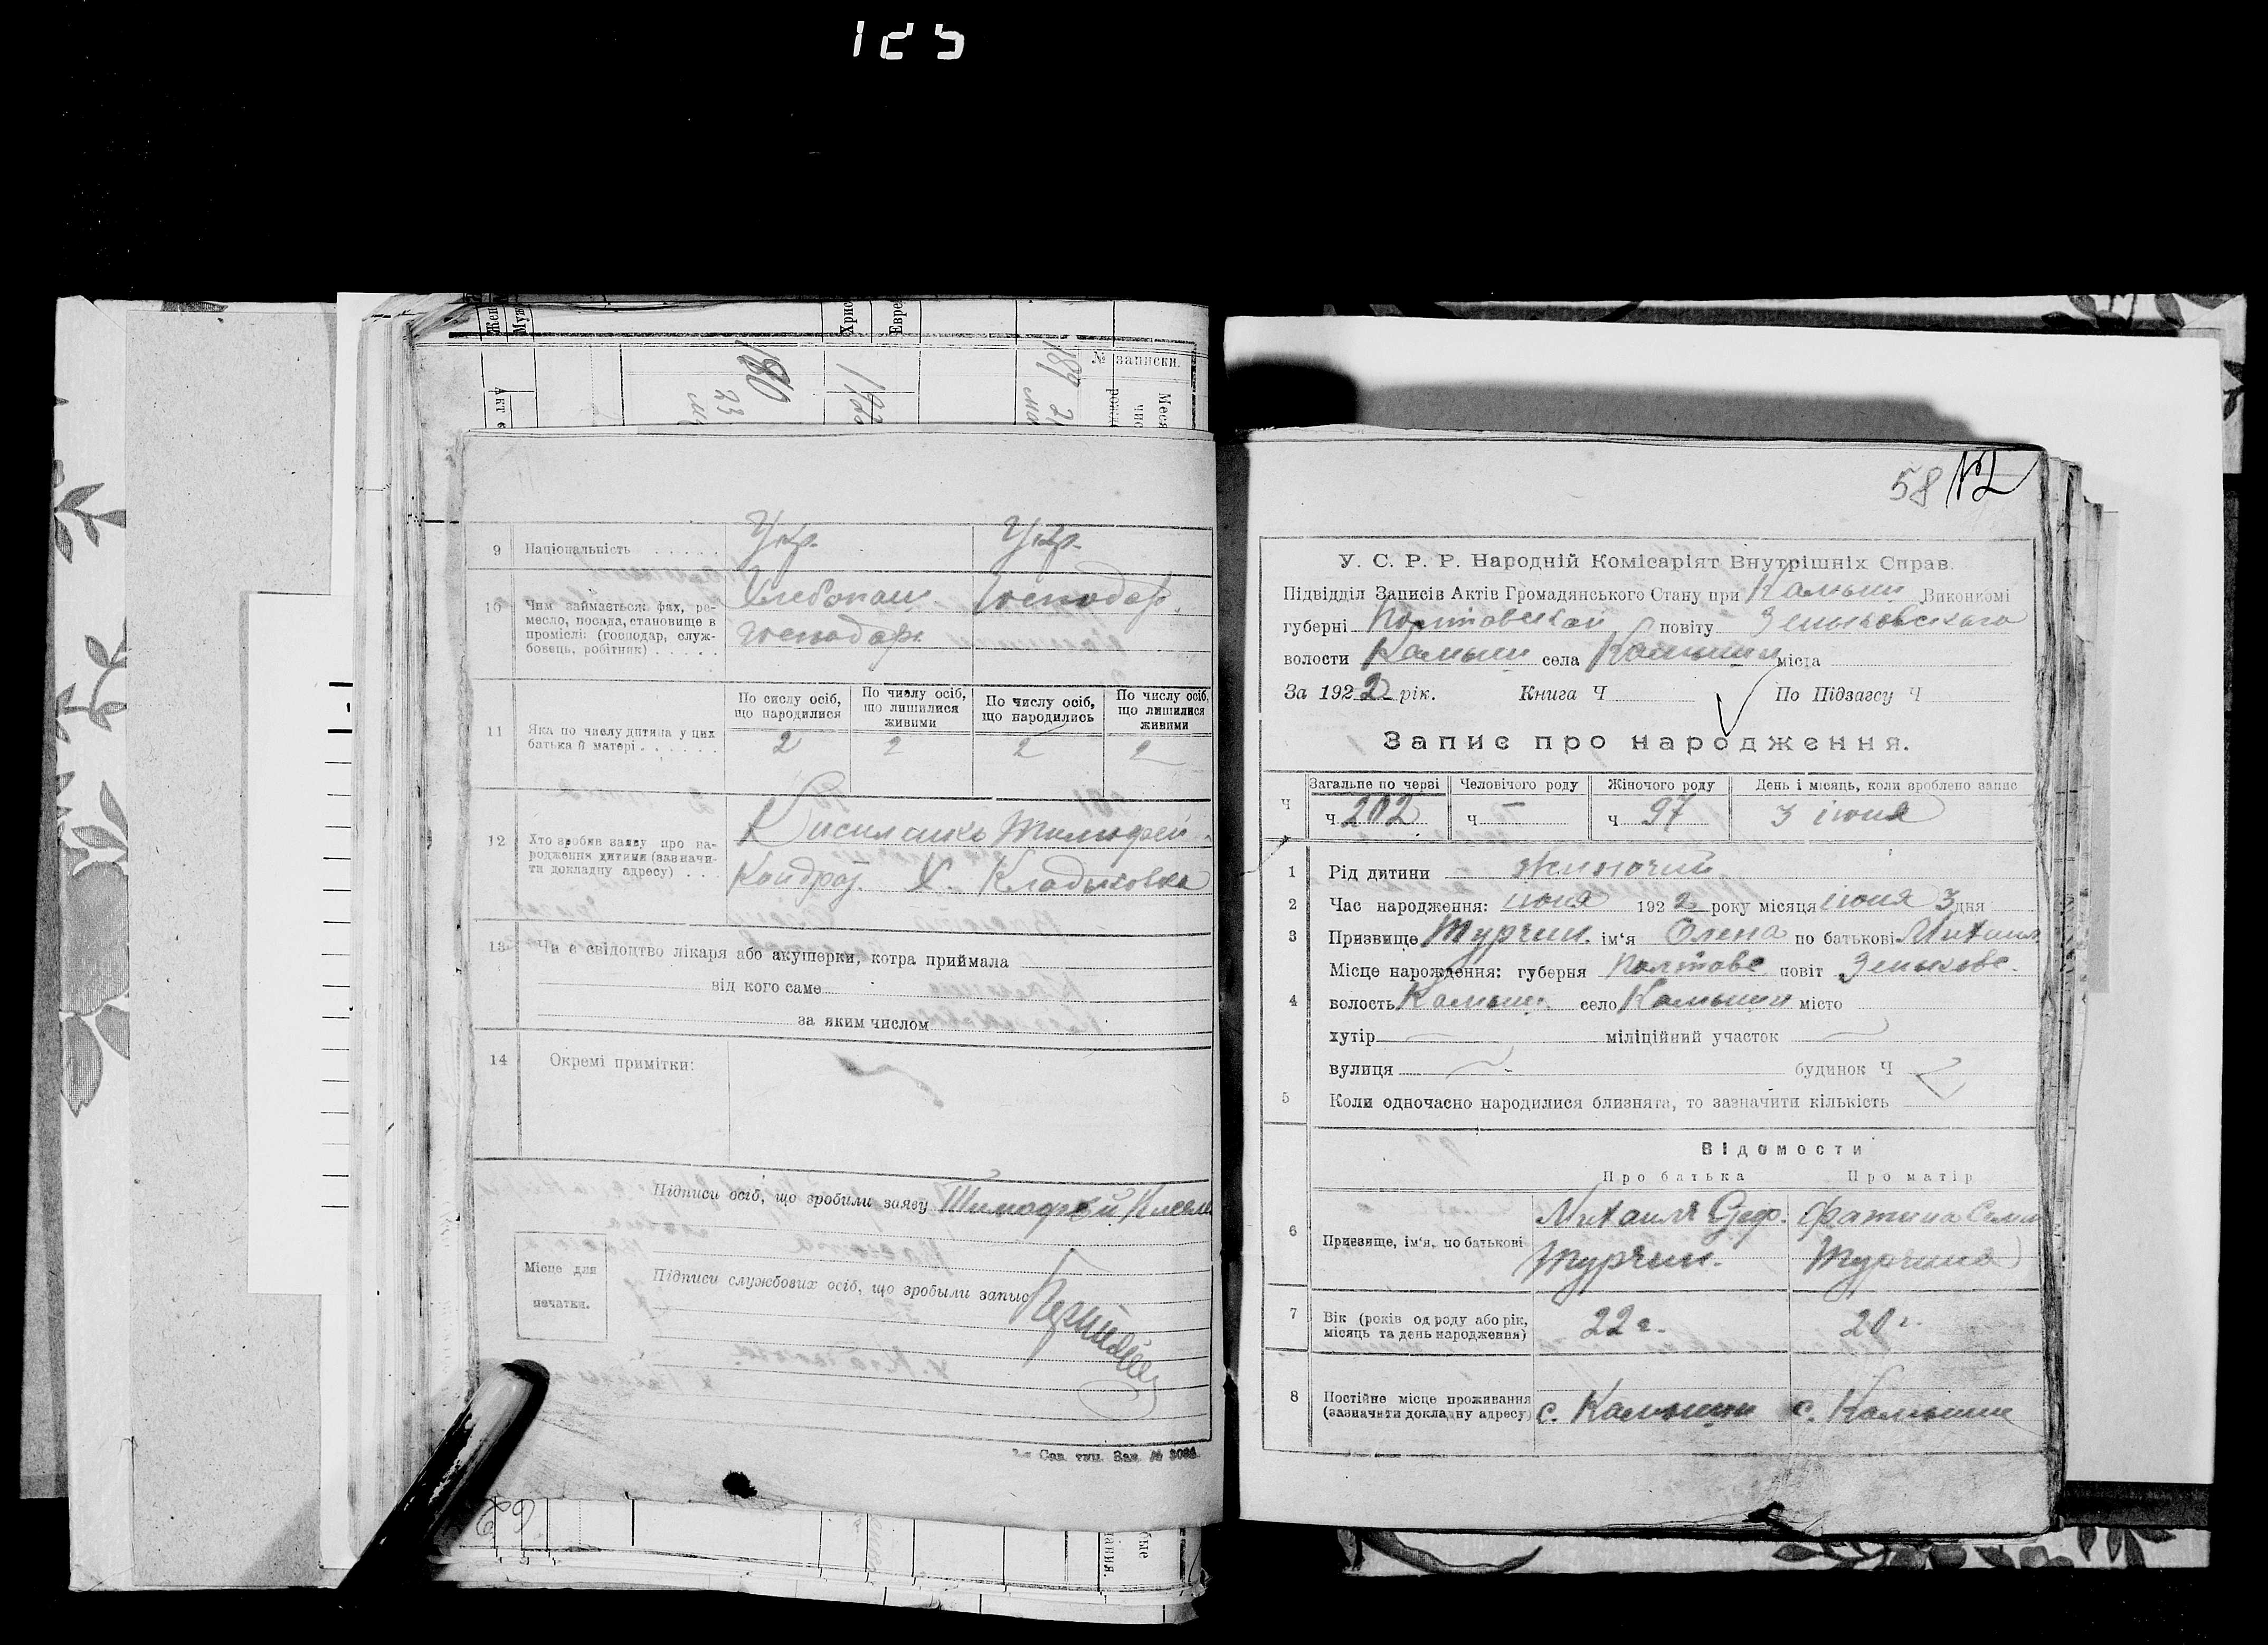 125
Жен
Муж
Хрис
Евре
180
192
189
№ записки.
23
9 Національність Укр. Укр.
10 Чим займається: фах, ре-
месло, посада, становище в
промислі: (господар, служ-
бовець, робітник)
Хлебопаш. Господар.
господар.
11 Яка по числу дитина у цих
батька й матері
По числу осіб, що народилися
По числу осіб, що лишилися живими
По числу осіб, що народились
По числу осіб, що лишилися живими
2 2 2 2
12 Хто зробив заяву про на-
родження дитини (зазначи-
ти докладну адресу)
Тимофей
Кондрат. Х.
13 Чи є свідоцтво лікаря або акушерки, котра приймала
від кого саме
за яким числом
14 Окремі примітки:
Підписи осіб, що зробили заяву Тимофей
Місце для
печатки.
Підписи службових осіб, що зробили запис
58
У. С. Р. Р. Народній Комісаріят Внутрішніх Справ.
Підвідділ Записів Актів Громадянського Стану при Камыш Виконкомі
губерні Полтавской повіту Зеньковского
волости Камыш села Камыши міста
За 1922 рік. Книга Ч По Підзагсу Ч
Запис про народження.
Загальне по черзі Человічого роду Жіночого роду День і місяць, коли зроблено запис
Ч ч 202 ч — ч 97 3 июня
1 Рід дитини Жиночий
2 Час народження: июня 1922 року місяця июня 3 дня
3 Призвище Турчин. ім‘я Олена по батькові Михаил
Місце народження: губерня Полтавс повіт Зеньковс.
4 волость Камыш. село Камыши місто
хутір міліційний участок
вулиця будинок Ч
5 Коли одночасно народилися близнята, то зазначити кількість
Відомости
Про батька Про матір
6 Призвище, ім‘я, по батькові
Михаил Фатина Семе
Турчин. Турчина
7 Вік (років од роду або рік,
місяць та день народження)
22 г. 20 г.
8 Постійне місце проживання
(зазначити докладну адресу)
с. Камыши с. Камыши